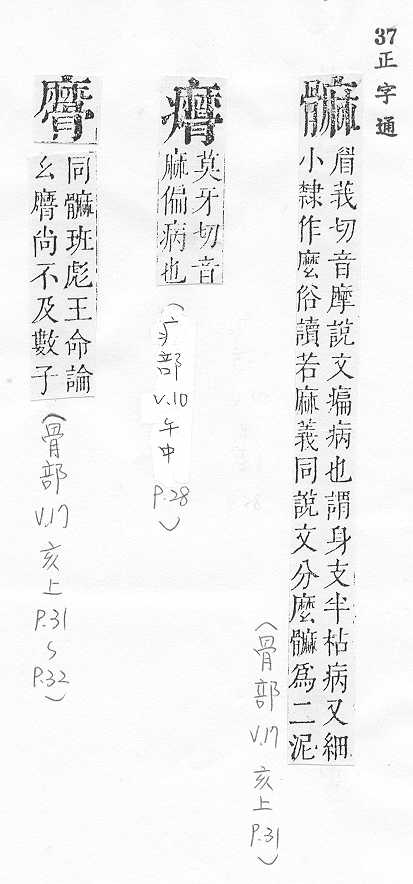 37正字通
髍
眉莪切音摩說文㾫病也謂身支半枯病又細
小隸作麼俗讀若麻義同說文分麼髍爲二泥
(骨部 V.17 亥上 P.31)
莫牙切音
麻偏病也
(疒部 V.10 午中 P.28)
䯢
同髍班彪王命論
幺䯢尚不及數子
(骨部 V.17 亥上 P.31~P.32)